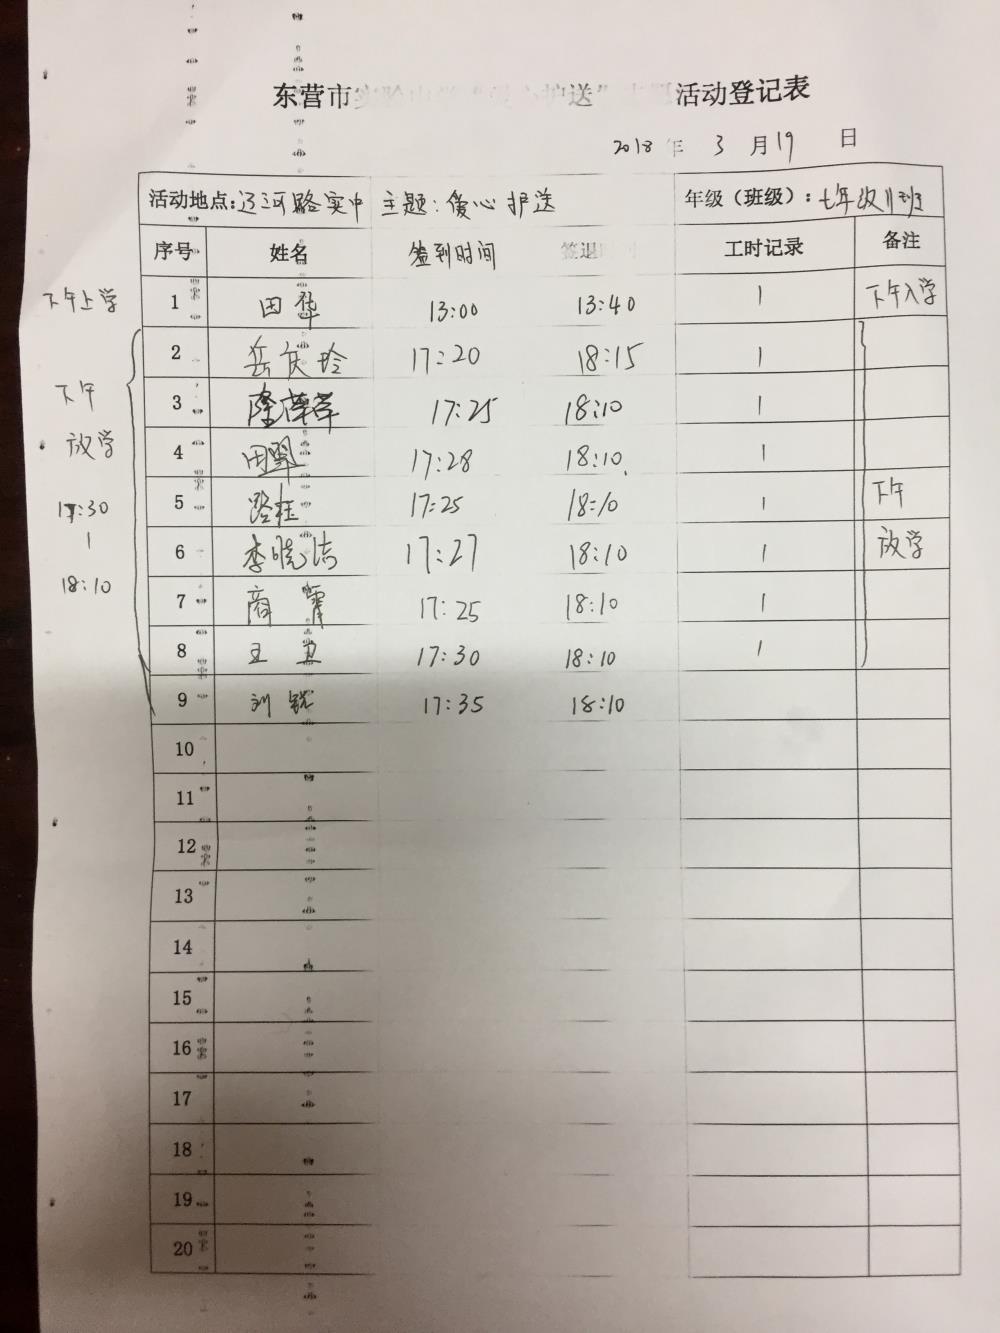 东营市 护送" 活动登记表
2018 年 3 月 19 日
活动地点:辽河路实中 主题:爱心护送 年级(班级):七年级11班
序号 姓名 签到时间 签退 工时记录 备注
下午上学 1 田华 13:00 13:40 1 下午入学
2 岳庆玲 17:20 18:15 1
下午 3 17:25 18:10 1
放学 4 田翠 17:28 18:10 1
17:30 5 路钰 17:25 18:10 1 下午
| 6 李晓洁 17:27 18:10 1 放学
18:10 7 商霄 17:25 18:10 1
8 王卫 17:30 18:10 1
9 刘锐 17:35 18:10
10
11
12
13
14
15
16
17
18
19
20